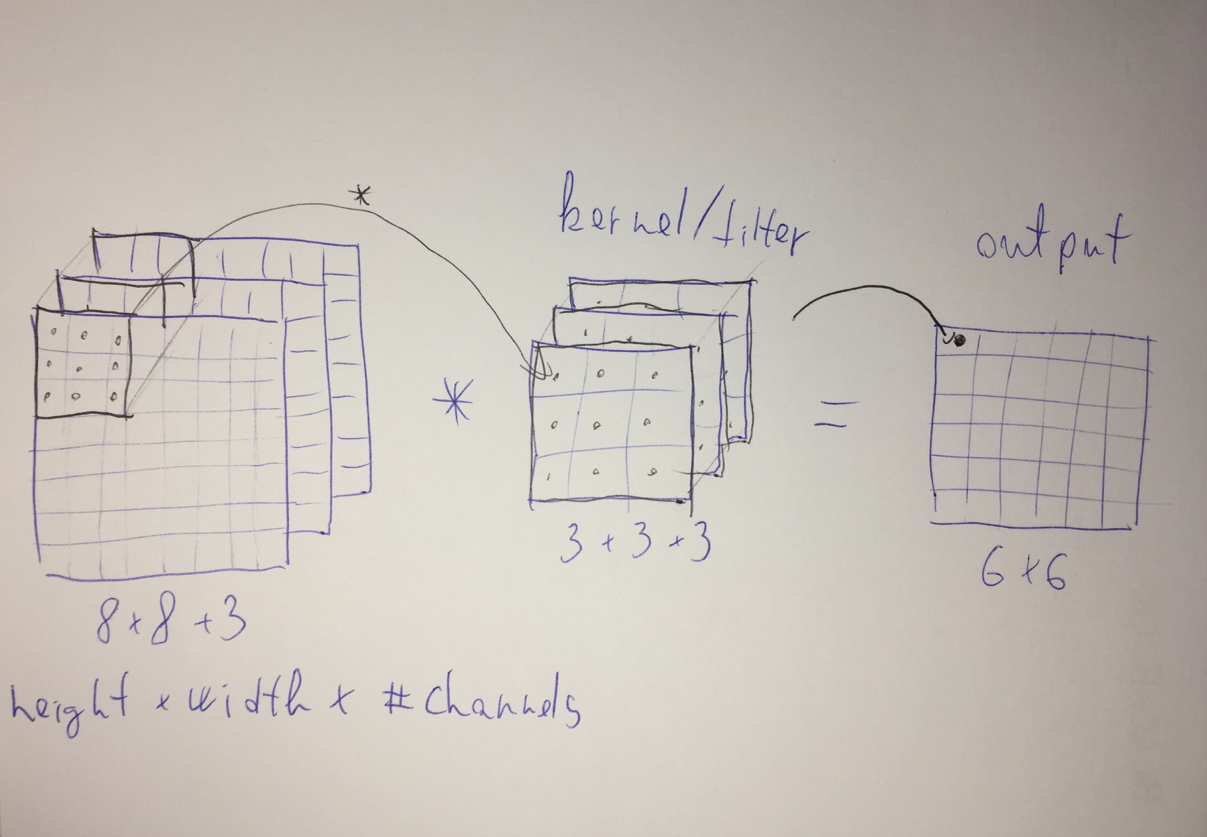 *
kernel/filter
output
*
=
3 × 3 × 3
6 × 6
8 × 8 × 3
height × width × # channels